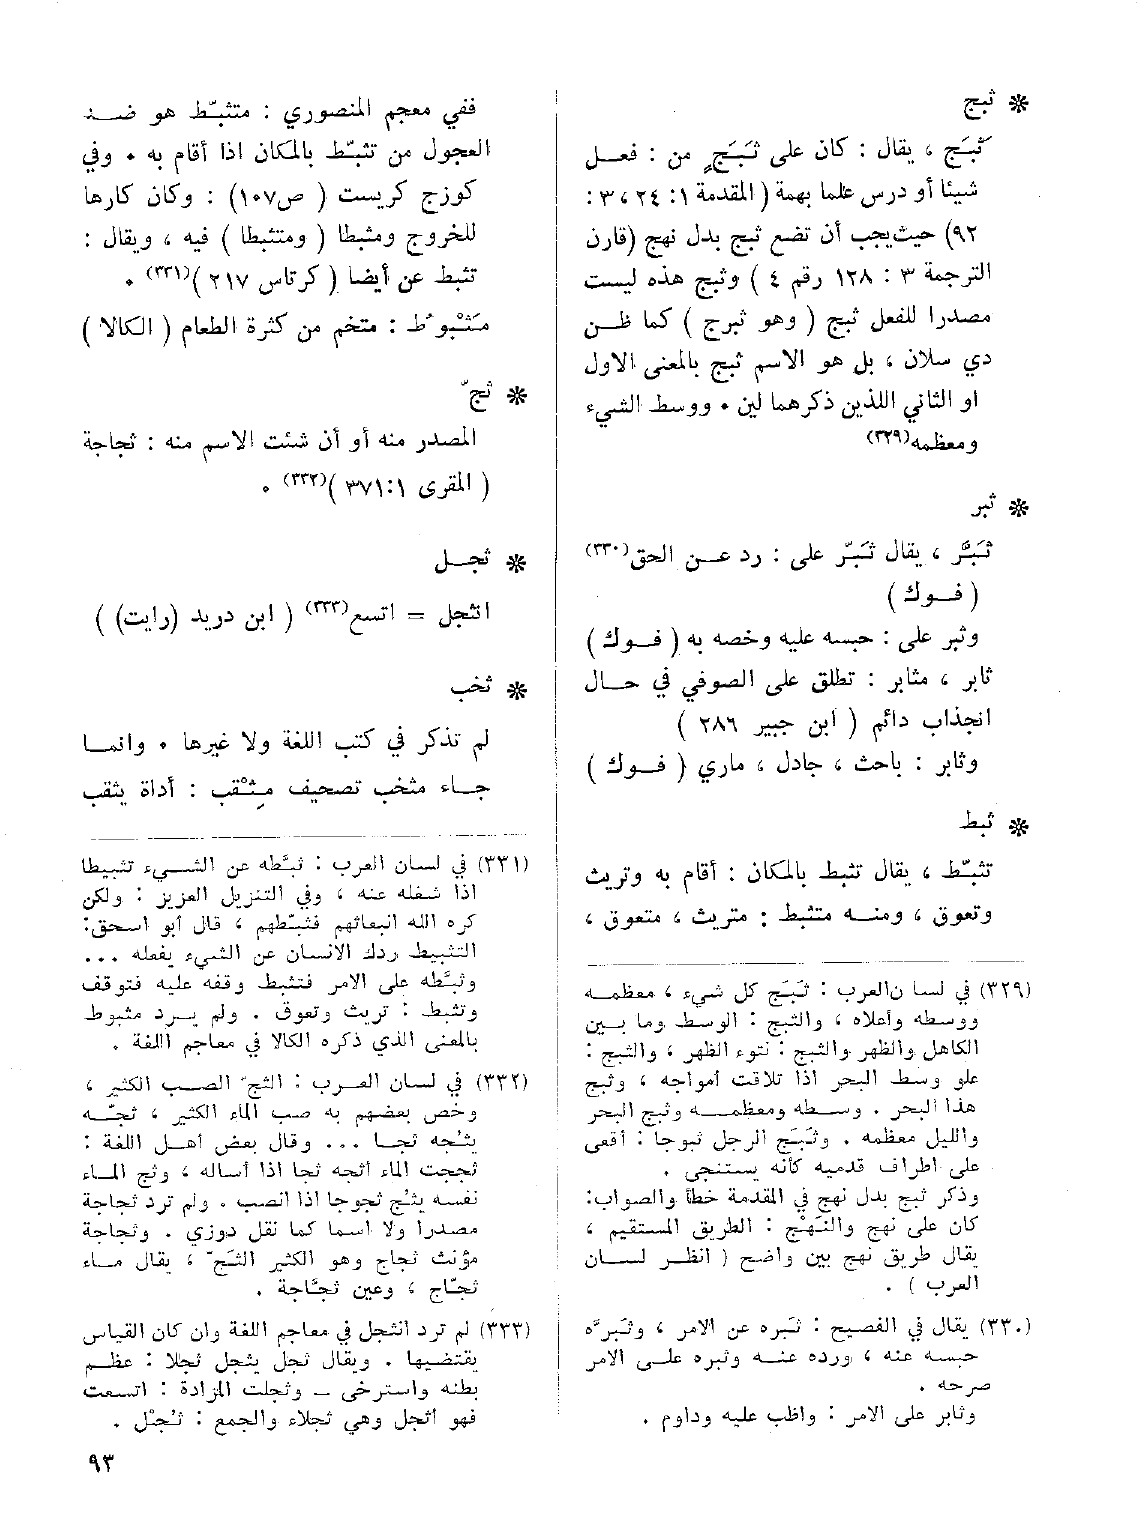 * ثبج
ثَبَج ، يقال : كان على ثَبَجٍ من : فعل
شيئا أو درس علما بهمة ( المقدمة ١: ٢٤ ، ٣ :
٩٢) حيث يجب أن تضع ثبج بدل نهج (قارن
الترجمة ٣ : ١٢٨ رقم ٤ ) وثبج هذه ليست
مصدرا للفعل ثبج ( وهو ثبرج ) كما ظن
دي سلان ، بل هو الاسم ثبج بالمعنى الاول
او الثاني اللذين ذكرهما لين . ووسط الشيء
ومعظمه(٣٢٩)
* ثبر
ثَبَّر ، يقال ثَبَّر على : رد عن الحق(٣٣٠)
( فوك )
وثبر على : حبسه عليه وخصه به ( فوك )
ثابر ، مثابر : تطلق على الصوفي في حال
انجذاب دائم ( ابن جبير ٢٨٦ )
وثابر : باحث ، جادل ، ماري ( فوك )
* ثبط
تثبّط ، يقال تثبط بالمكان : أقام به وتريث
وتعوق ، ومنه متثبط : متريث ، متعوق ،
(٣٢٩) في لسا ن العرب : ثَبَج كل شيء ، معظمه
ووسطه وأعلاه ، والثبج : الوسط وما بين
الكاهل والظهر والثبج : نتوء الظهر ، والثبج :
علو وسط البحر اذا تلاقت أمواجه ، وثبج
هذا البحر . وسطه ومعظمه وثبج البحر
والليل معظمه . وثَبَج الرجل ثبوجا : أقعى
على اطراف قدميه كأنه يستنجي .
وذكر ثبج بدل نهج في المقدمة خطأ والصواب:
كان على نهج والنَهْج : الطريق المستقيم ،
يقال طريق نهج بين واضح ( انظر لسان
العرب ) .
(٣٣٠) يقال في الفصيح : ثبره عن الامر ، وثبرَّه
حبسه عنه ، ورده عنه وثبره على الامر
صرحه .
وثابر على الامر : واظب عليه وداوم .
ففي معجم المنصوري : متثبّط هو ضد
العجول من تثبّط بالمكان اذا أقام به . وفي
كوزج كريست ( ص١٠٧) : وكان كارها
للخروج ومثبطا ( ومتثبطا ) فيه ، ويقال :
تثبط عن أيضا ( كرتاس ٢١٧ )(٣٣١) .
مَثْبُوط : متخم من كثرة الطعام ( الكالا )
* ثجّ
المصدر منه أو أن شئت الاسم منه : ثجاجة
( المقرى ٣٧١:١ )(٣٣٢) .
* ثجل
انثجل = اتسع(٣٣٣) ( ابن دريد (رايت) )
* ثخب
لم تذكر في كتب اللغة ولا غيرها . وانما
جاء مثخب تصحيف مِثْقب : أداة يثقب
(٣٣١) في لسان العرب : ثبَّطه عن الشيء تثبيطا
اذا شغله عنه ، وفي التنزيل العزيز : ولكن
كره الله انبعاثهم فثبّطهم ، قال أبو اسحق:
التثبيط ردك الانسان عن الشيء يفعله ...
وثبَّطه على الامر فتثبط وقفه عليه فتوقف
وتثبط : تريث وتعوق . ولم يرد مثبوط
بالمعنى الذي ذكره الكالا في معاجم اللغة .
(٣٣٢) في لسان العرب : الثجّ الصب الكثير ،
وخص بعضهم به صب الماء الكثير ، ثجّه
يثجه ثجا ... وقال بعض أهل اللغة :
ثججت الماء أثجه ثجا اذا أساله ، وثج الماء
نفسه يثُج ثجوجا اذا انصب . ولم ترد ثجاجة
مصدرا ولا اسما كما نقل دوزي . وثجاجة
مؤنث ثجاج وهو الكثير الثَج ، يقال ماء
ثجّاج ، وعين ثجَّاجة .
(٣٣٣) لم ترد انثجل في معاجم اللغة وان كان القياس
يقتضيها . ويقال ثجل يثجل ثجلا : عظم
بطنه واسترخى - وثجلت المزادة : اتسعت
فهو أثجل وهي ثجلاء والجمع : ثُجْل .
٩٣